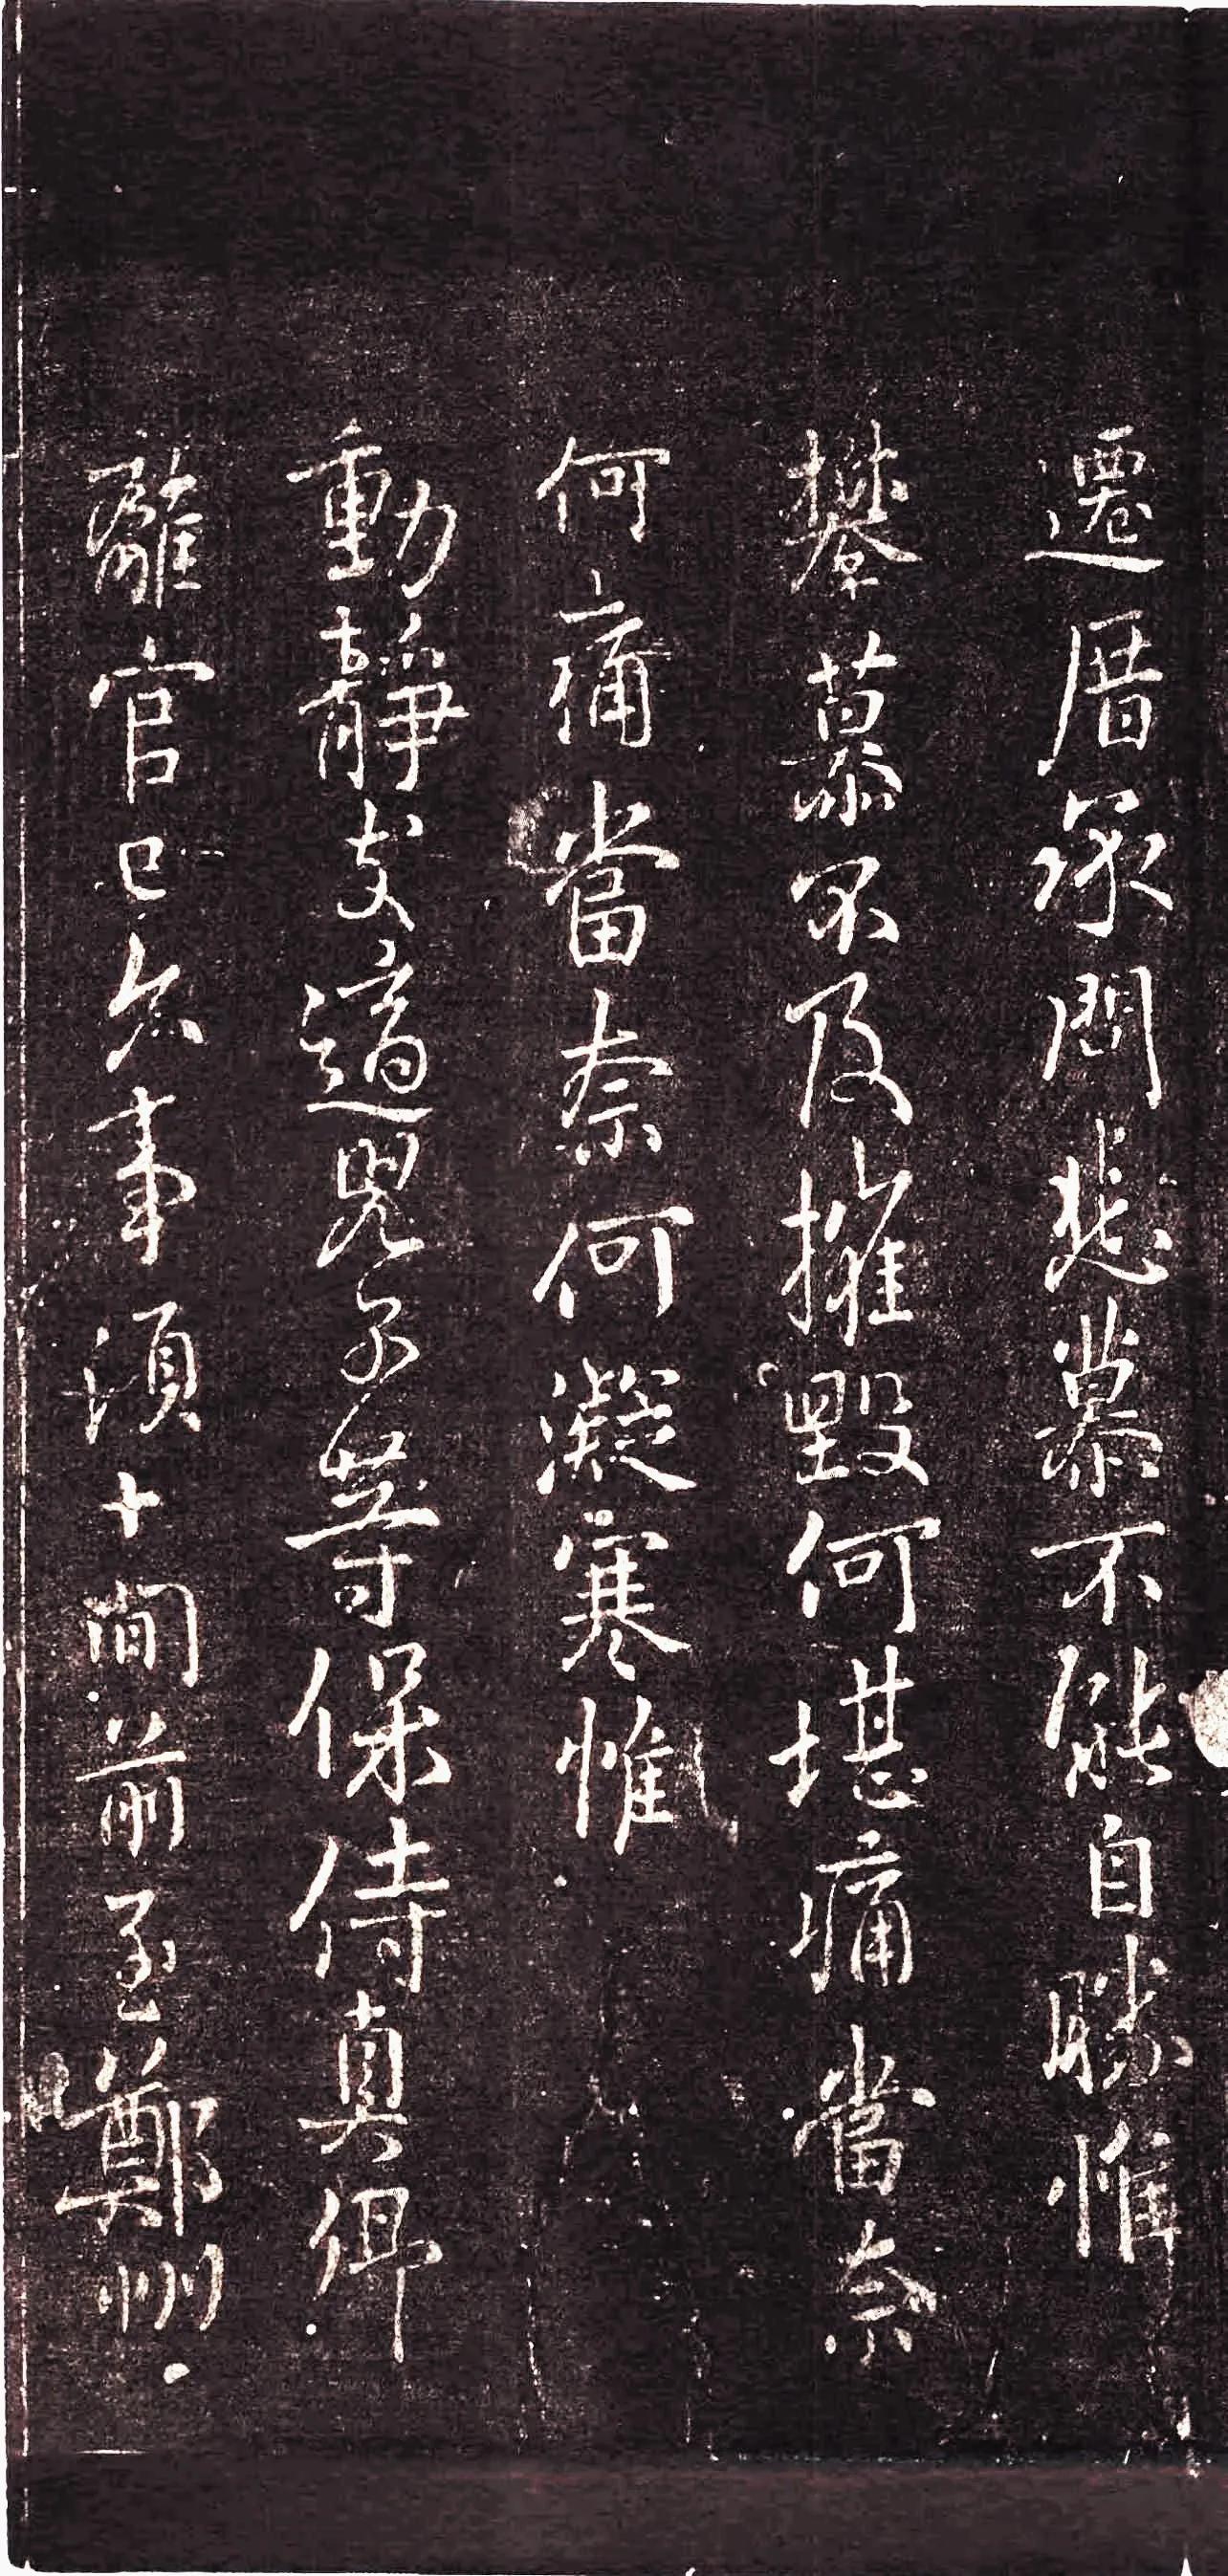 遷厝承問悲慕不能自勝惟
攀慕不及摧毀何堪痛當奈
何痛當奈何凝寒惟
動靜支適兒子等保侍真卿
離官已久事須十間前至鄭州